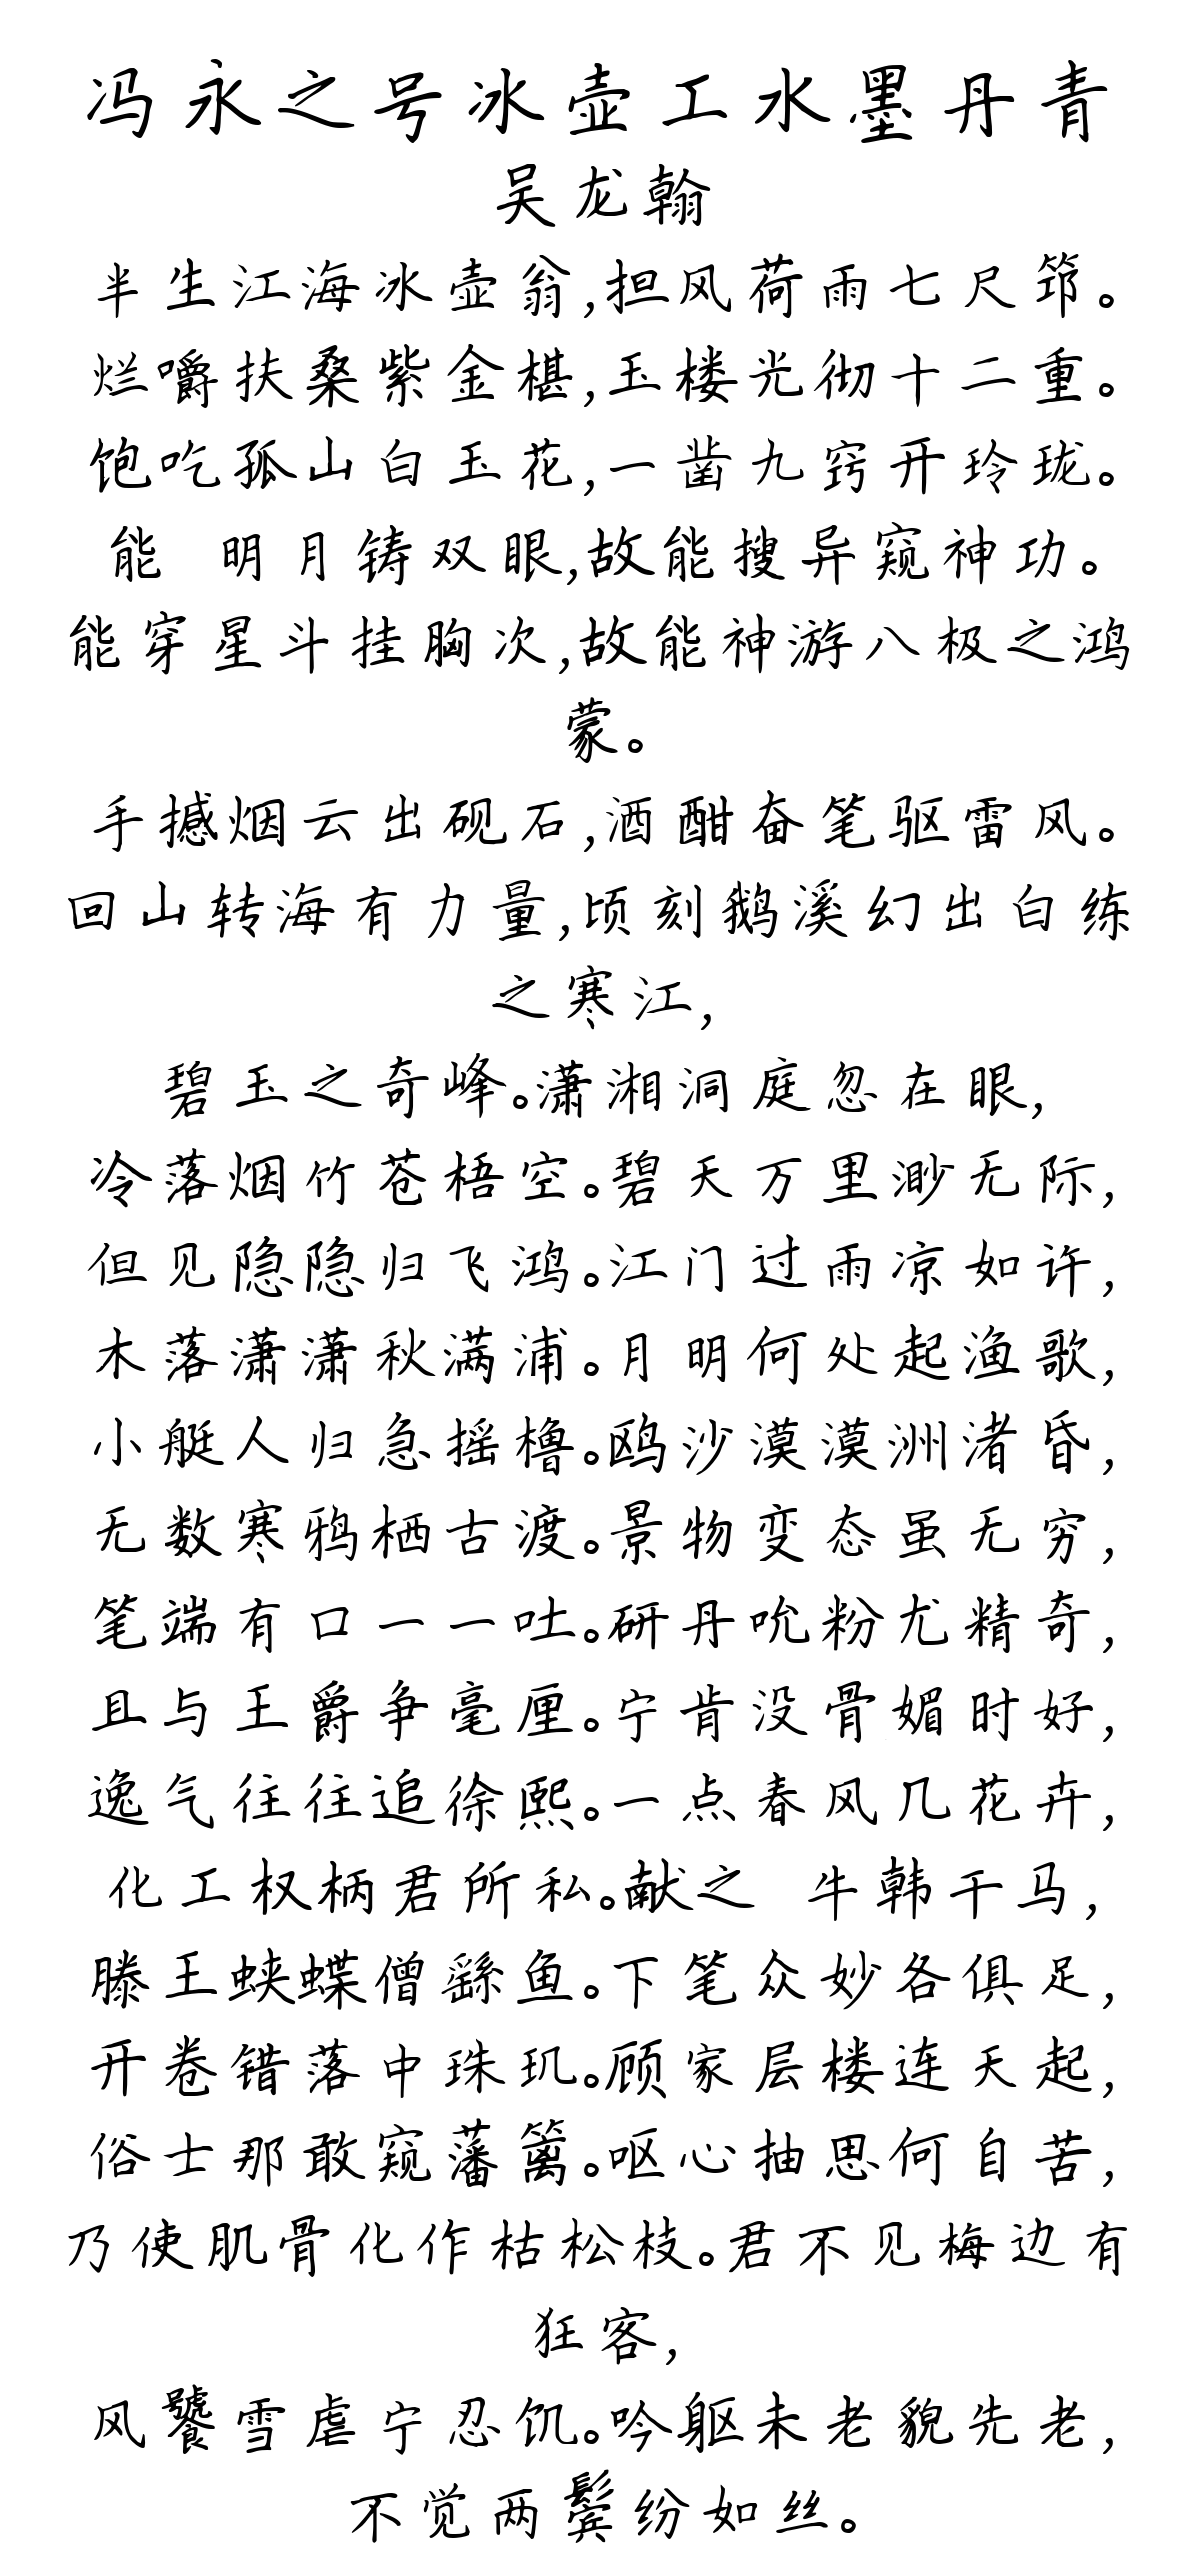 冯永之号冰壶工水墨丹青
吴龙翰
半生江海冰壶翁,担风荷雨七尺筇。
烂嚼扶桑紫金椹,玉楼光彻十二重。
饱吃孤山白玉花,一凿九窍开玲珑。
能 明月铸双眼,故能搜异窥神功。
能穿星斗挂胸次,故能神游八极之鸿
蒙。
手撼烟云出砚石,酒酣奋笔驱雷风。
回山转海有力量,顷刻鹅溪幻出白练
之寒江,
碧玉之奇峰。潇湘洞庭忽在眼,
冷落烟竹苍梧空。碧天万里渺无际,
但见隐隐归飞鸿。江门过雨凉如许,
木落潇潇秋满浦。月明何处起渔歌,
小艇人归急摇橹。鸥沙漠漠洲渚昏,
无数寒鸦栖古渡。景物变态虽无穷,
笔端有口一一吐。研丹吮粉尤精奇,
且与王爵争毫厘。宁肯没骨媚时好,
逸气往往追徐熙。一点春风几花卉,
化工权柄君所私。献之 牛韩干马,
滕王蛱蝶僧繇鱼。下笔众妙各俱足,
开卷错落中珠玑。顾家层楼连天起,
俗士那敢窥藩篱。呕心抽思何自苦,
乃使肌骨化作枯松枝。君不见梅边有
狂客,
风饕雪虐宁忍饥。吟躯未老貌先老,
不觉两鬓纷如丝。